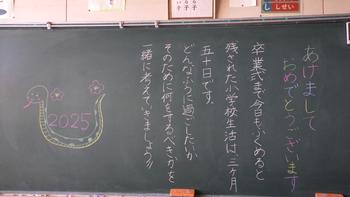 あけまして
おめでとうございます
卒業式まで今日もふくめると
残された小学校生活は三ヶ月
五十日です。
どんなふうに過ごしたいか
そのために何をするべきかを
一緒に考えていきましょう!!
2025
しせい